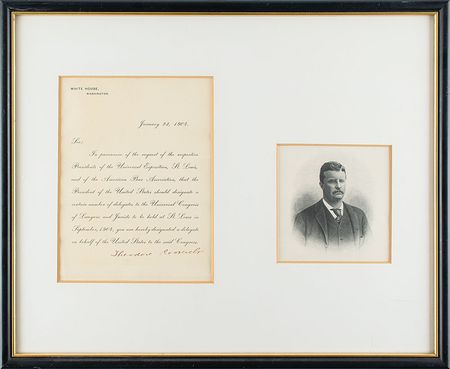 WHITE HOUSE,
WASHINGTON.
January 22, 1904.
Sir:
In pursuance of the request of the respective
Presidents of the Universal Exposition, St. Louis,
and of the American Bar Association, that the
President of the United States should designate a
certain number of delegates to the Universal Congress
of Lawyers and Jurists to be held at St. Louis in
September, 1904, you are hereby designated a delegate
on behalf of the United States to the said Congress.
Theodore Roosevelt